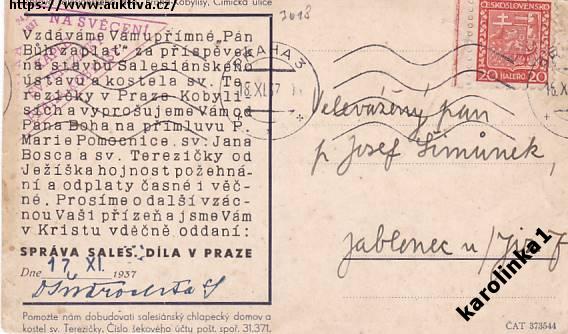 https://www.auktiva.cz/
Kobylisy, Čimická ulice
NA SVĚCENÍ
Vzdáváme Vám upřímné „Pán
Bůh zaplať" za příspěvek
na stavbu Salesiánského
ústavu a kostela sv. Te-
rezičky v Praze Kobyli-
sích a vyprošujeme Vám od
Pána Boha na přímluvu P.
Marie Pomocnice. sv. Jana
Bosca a sv. Terezičky od
Ježíška hojnost požehná-
ní a odplaty časné i věč-
né. Prosíme o další vzác-
nou Vaši přízeň a jsme Vám
v Kristu vděčně oddaní:
SPRÁVA SALES. DÍLA V PRAZE
Dne 17. XI. 1937
Pomozte nám dobudovati salesiánský chlapecký domov a
kostel sv. Terezičky. Číslo šekového účtu pošt. spoř. 31.371.
PRAHA 3
XI.37
ČESKOSLOVENSKO
20 HALÉŘŮ 20
Velevážený pan
p. Josef Šimůnek,
Jablonec n/Jiz.
karolinka1
ČAT 373544